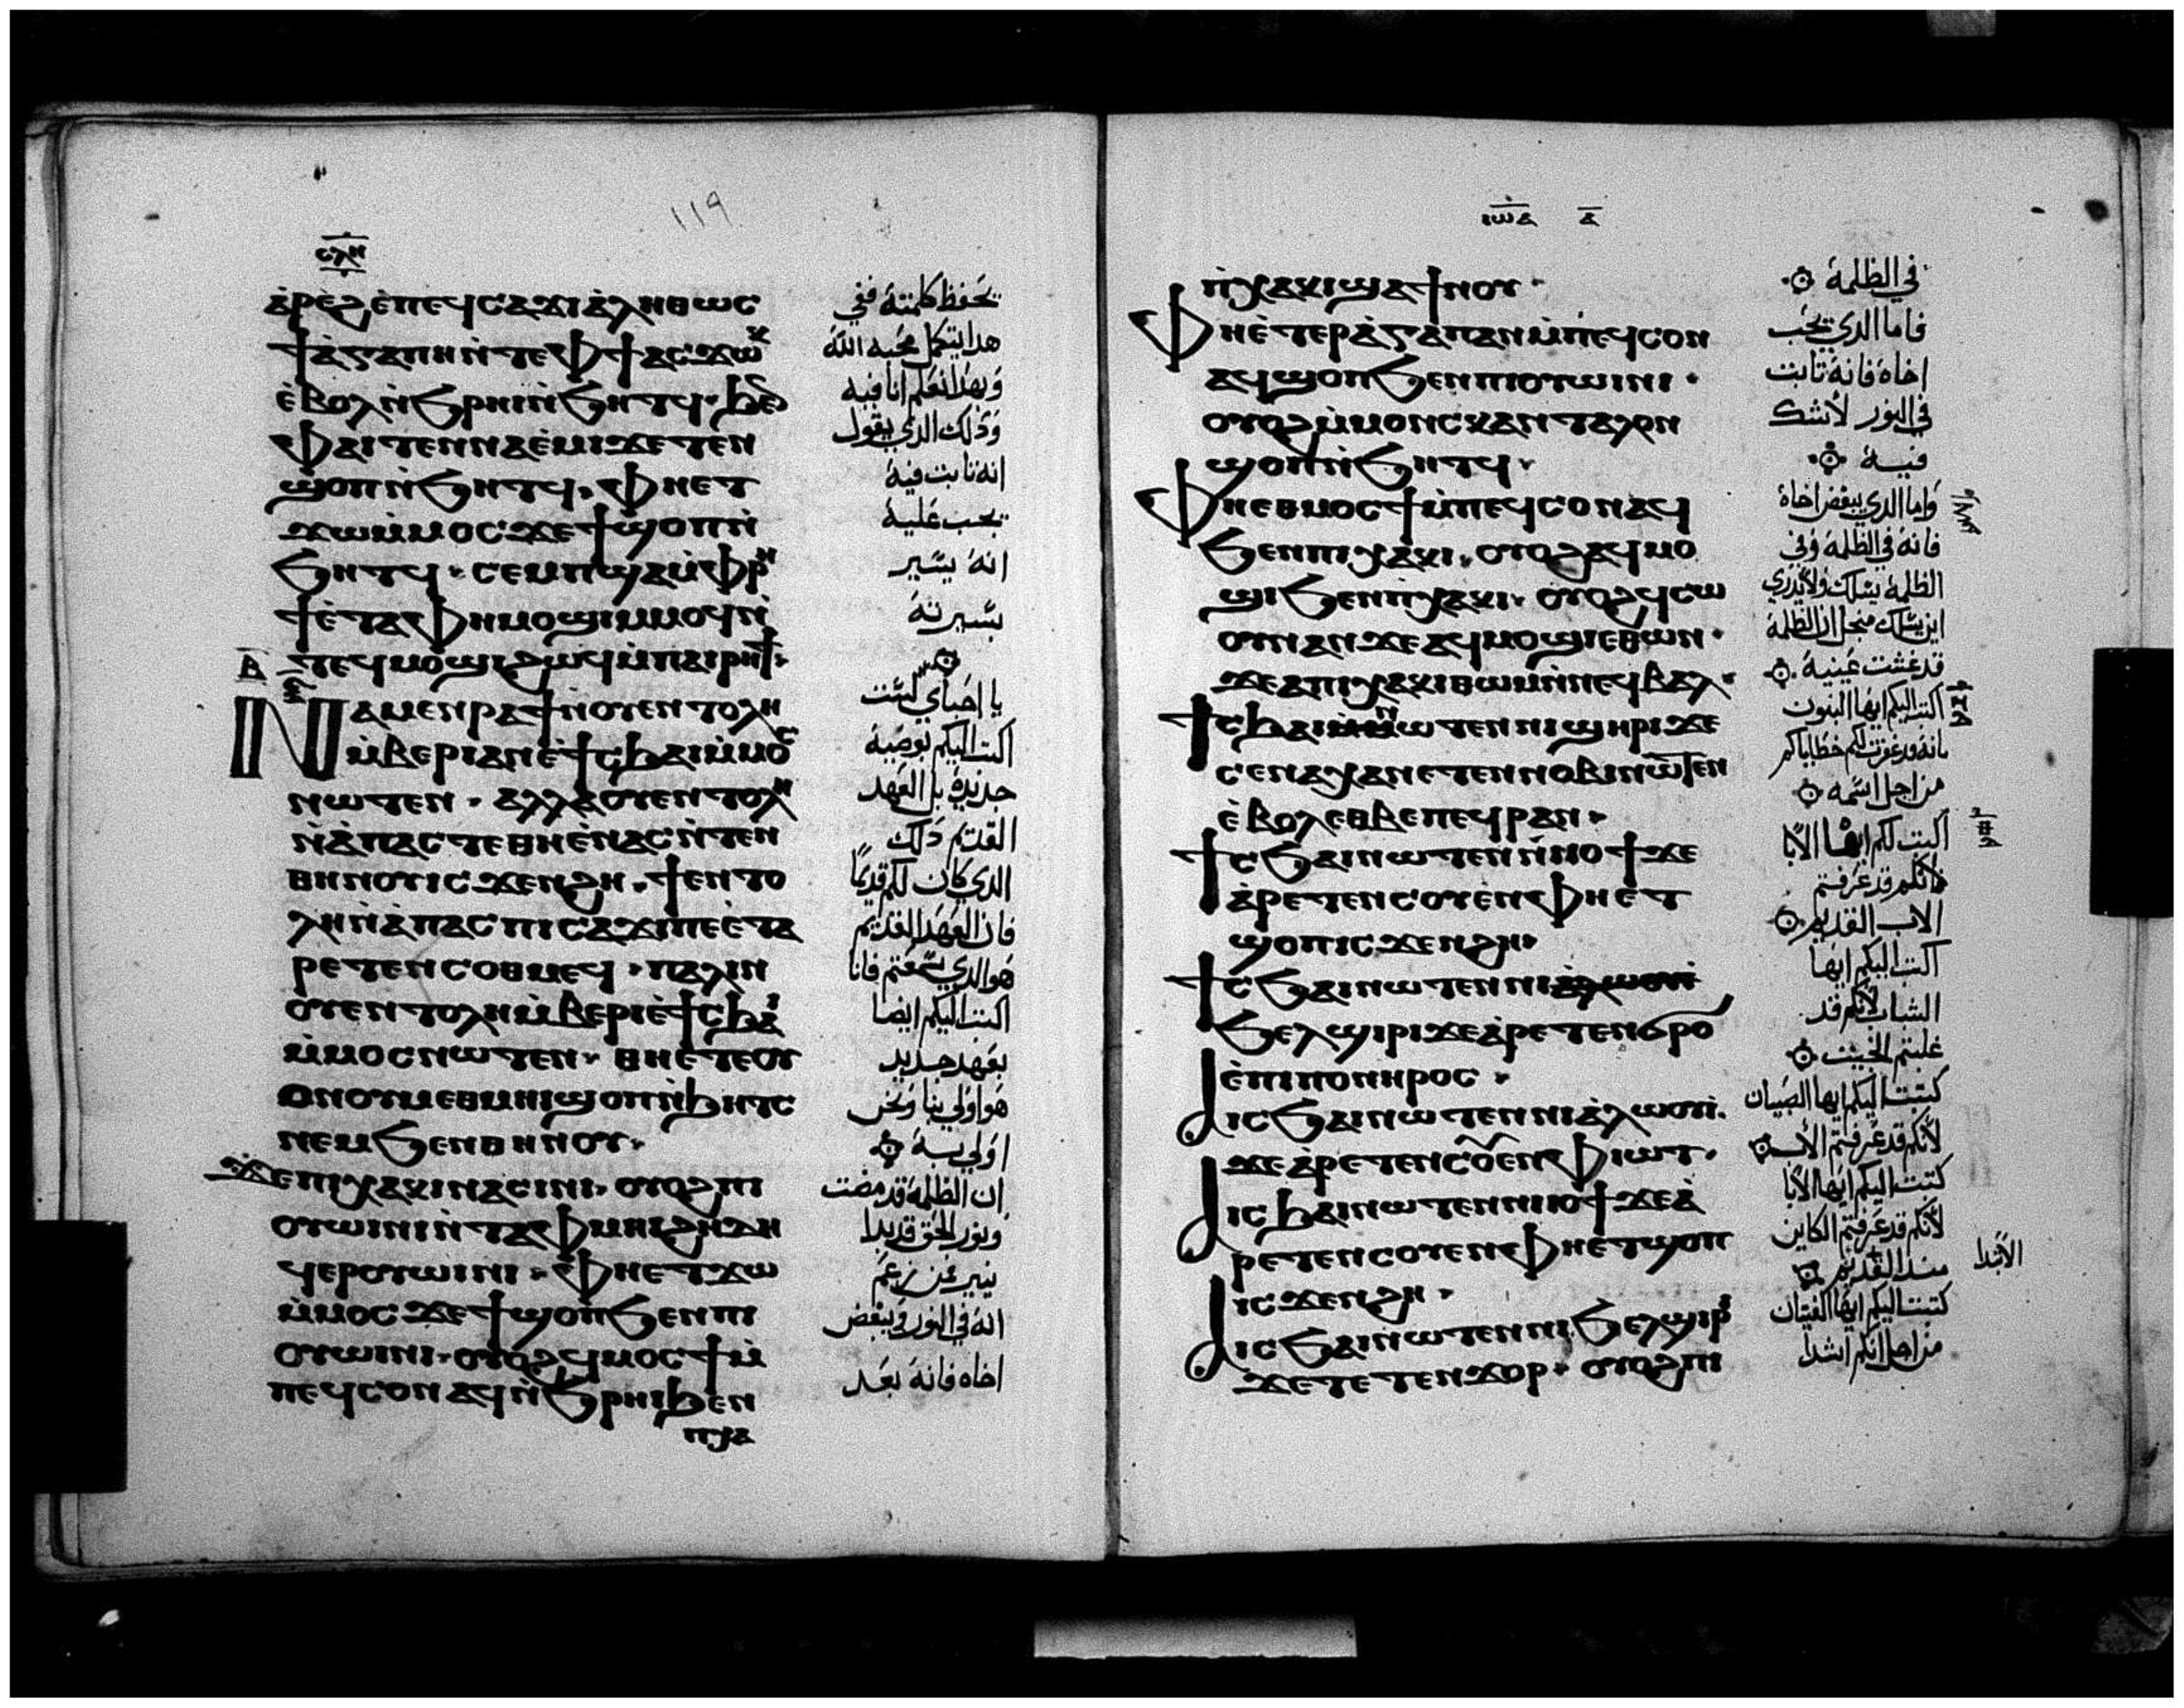 119
ⲥⲗⲏ
ⲁ̀ⲣⲉϩ ⲉ̀ⲡⲉϥⲥⲁϫⲓ ⲁ̀ⲗⲏⲑⲱⲥ
ϯⲁ̀ⲅⲁⲡⲏ ⲛ̀ⲧⲉ ⲫϯ ⲁⲥϫⲱⲕ
ⲉ̀ⲃⲟⲗ ⲛ̀ϧⲣⲏⲓ ⲛ̀ϧⲏⲧϥ
ⲫⲁⲓ ⲧⲉⲛⲛⲁⲉ̀ⲙⲓ ϫⲉ ⲧⲉⲛ
ϣⲟⲡ ⲛ̀ϧⲏⲧϥ· ⲫⲏ ⲉⲧ
ϫⲱ ⲙ̀ⲙⲟⲥ ϫⲉ ϯϣⲟⲡ ⲛ̀
ϧⲏⲧϥ· ⲥⲉⲙⲡϣⲁ ⲙ̀ⲫⲣⲏ
ϯ ⲉ̀ⲧⲁ ⲫⲏ ⲙⲟϣⲓ ⲙⲙⲟϥ ⲛ̀
ⲧⲉϥⲙⲟϣⲓ ϩⲱϥ ⲙ̀ⲡⲁⲓⲣⲏϯ·
ⲃ̅
ⲛⲁⲙⲉⲛⲣⲁϯ ⲛⲟⲩⲉⲛⲧⲟⲗⲏ
ⲙ̀ⲃⲉⲣⲓ ⲁⲛ ⲉ̀ϯⲥϧⲁⲓ ⲙ̀ⲙⲟⲥ
ⲛⲱⲧⲉⲛ· ⲁⲗⲗⲁ ⲟⲩⲉⲛⲧⲟⲗⲏ
ⲛ̀ⲁ̀ⲡⲁⲥ ⲧⲉ ⲑⲏ ⲉ̀ⲛⲁⲥ ⲛ̀ⲧⲉⲛ
ⲑⲏⲛⲟⲩ ⲓⲥϫⲉⲛ ϩⲏ· ϯⲉⲛⲧⲟ
ⲗⲏ ⲛ̀ⲁ̀ⲡⲁⲥ ⲡⲓⲥⲁϫⲓ ⲡⲉ ⲉ̀ⲧⲁ
ⲣⲉⲧⲉⲛⲥⲟⲑⲙⲉϥ· ⲡⲁⲗⲓⲛ
ⲟⲩⲉⲛⲧⲟⲗⲏ ⲙ̀ⲃⲉⲣⲓ ⲉ̀ϯⲥϧⲁⲓ
ⲙ̀ⲙⲟⲥ ⲛⲱⲧⲉⲛ· ⲑⲏ ⲉ̀ⲧⲉ ⲟⲩ
ⲟⲛ ⲟⲩⲙⲉⲑⲙⲏⲓ ϣⲟⲡ ⲛ̀ϧⲏⲧⲥ
ⲛⲉⲙ ϧⲉⲛ ⲑⲏⲛⲟⲩ·
ϫⲉ ⲡⲓⲭⲁⲕⲓ ⲛⲁⲥⲓⲛⲓ· ⲟⲩⲟϩ ⲡⲓ
ⲟⲩⲱⲓⲛⲓ ⲛ̀ⲧⲁⲫⲙⲏⲓ ϩⲏⲇⲏ
ϥⲉⲣⲟⲩⲱⲓⲛⲓ· ⲫⲏ ⲉⲧϫⲱ
ⲙ̀ⲙⲟⲥ ϫⲉ ϯϣⲟⲡ ϧⲉⲛ ⲡⲓ
ⲟⲩⲱⲓⲛⲓ· ⲟⲩⲟϩ ϥⲙⲟⲥϯ ⲙ̀
ⲡⲉϥⲥⲟⲛ ⲁϥ ⲛ̀ϧⲣⲏⲓ ϧⲉⲛ
ⲡⲭⲁ
تحفظ كلمته ففي
هدا يتكمل محبه الله
وبهدا نعلم اننا فيه
وذلك الدي يقول
انه تابت فيه
يجب عليه
انه يسير
بسيرته
يا احباي لست
اكتب اليكم بوصية
جديدة بل العهد
القديم دلك
الدي كان لكم قديمًا
فان العهد القديم
هو الدي سمعتم فانا
اكتب اليكم ايضا
بعهد جديد
هو اولي بنا ونحن
اولي به
ان الظلمة قد مضت
ونور الحق قد بدا
ينير فمن زعم
انه في النور ويبغض
اخاه فانه بعد
ⲓⲱⲁ ⲁ̅
ⲡ̀ⲭⲁⲕⲓ ϣⲁ ϯⲛⲟⲩ·
ⲫⲏ ⲉ̀ⲧⲉⲣⲁ̀ⲅⲁⲡⲁⲛ ⲙ̀ⲡⲉϥⲥⲟⲛ
ⲁϥϣⲟⲡ ϧⲉⲛ ⲡⲓⲟⲩⲱⲓⲛⲓ·
ⲟⲩⲟϩ ⲙ̀ⲙⲟⲛ ⲥⲕⲁⲛⲧⲁⲗⲟⲛ
ϣⲟⲡ ⲛ̀ϧⲏⲧϥ·
ⲫⲏ ⲉⲑⲙⲟⲥϯ ⲙ̀ⲡⲉϥⲥⲟⲛ ⲁϥ
ϧⲉⲛ ⲡⲓⲭⲁⲕⲓ· ⲟⲩⲟϩ ⲁϥⲙⲟ
ϣⲓ ϧⲉⲛ ⲡⲭⲁⲕⲓ· ⲟⲩⲟϩ ϥⲥⲱ
ⲟⲩⲛ ⲁⲛ ϫⲉ ⲁϥⲙⲟϣⲓ ⲉⲑⲱⲛ·
ϫⲉ ⲁ ⲡⲓⲭⲁⲕⲓ ⲑⲱⲙ ⲛ̀ⲛⲉϥⲃⲁⲗ·
ϯⲥϧⲁⲓ ⲛⲱⲧⲉⲛ ⲛⲓϣⲏⲣⲓ ϫⲉ
ⲥⲉⲛⲁⲭⲁ ⲛⲉⲧⲉⲛⲛⲟⲃⲓ ⲛⲱⲧⲉⲛ
ⲉ̀ⲃⲟⲗ ⲉⲑⲃⲉ ⲡⲉϥⲣⲁⲛ·
ϯⲥϧⲁⲓ ⲛⲱⲧⲉⲛ ⲛⲓⲓⲟϯ ϫⲉ
ⲁ̀ⲣⲉⲧⲉⲛⲥⲟⲩⲉⲛ ⲫⲏ ⲉ̀ⲧ
ϣⲟⲡ ⲓⲥϫⲉⲛ ϩⲏ·
ϯⲥϧⲁⲓ ⲛⲱⲧⲉⲛ ⲛⲓⲁ̀ⲗⲱⲟⲩⲓ̀
ϧⲉⲗϣⲓⲣⲓ ϫⲉ ⲁ̀ⲣⲉⲧⲉⲛϭⲣⲟ
ⲉ̀ⲡⲓⲡⲟⲛⲏⲣⲟⲥ·
ⲁⲓⲥϧⲁⲓ ⲛⲱⲧⲉⲛ ⲛⲓⲁ̀ⲗⲱⲟⲩⲓ̀·
ϫⲉ ⲁ̀ⲣⲉⲧⲉⲛⲥⲟⲩⲉⲛ ⲫⲓⲱⲧ·
ⲁⲓⲥϧⲁⲓ ⲛⲱⲧⲉⲛ ⲛⲓⲓⲟϯ ϫⲉ ⲁ̀
ⲣⲉⲧⲉⲛⲥⲟⲩⲉⲛ ⲫⲏ ⲉⲧϣⲟⲡ
ⲓⲥϫⲉⲛ ϩⲏ·
ⲁⲓⲥϧⲁⲓ ⲛⲱⲧⲉⲛ ⲛⲓϧⲉⲗϣⲓⲣⲓ
ϫⲉ ⲧⲉⲧⲉⲛϫⲟⲣ· ⲟⲩⲟϩ ⲡⲓ
في الظلمة
فاما الدي يحب
اخاه فانه تابت
في النور لا شك
فيه
واما الدي يبغض اخاه
فانه في الظلمة وفي
الظلمة يسلك ولا يدري
اين يسلك من اجل ان الظلمة
قد غشت عينيه
اكتب اليكم ايها البنون
بانه قد غفرت لكم خطاياكم
من اجل اسمه
اكتب لكم ايها الابا
لانكم قد عرفتم
الاب القديم
اكتب اليكم ايها
الشباب لانكم قد
غلبتم الخبيث
كتبت اليكم ايها الصبيان
لانكم قد عرفتم الاب
كتبت اليكم ايها الابا
لانكم قد عرفتم الكاين
مند القديم
الابدا
كتبت اليكم ايها الفتيان
من اجل انكم اشدا